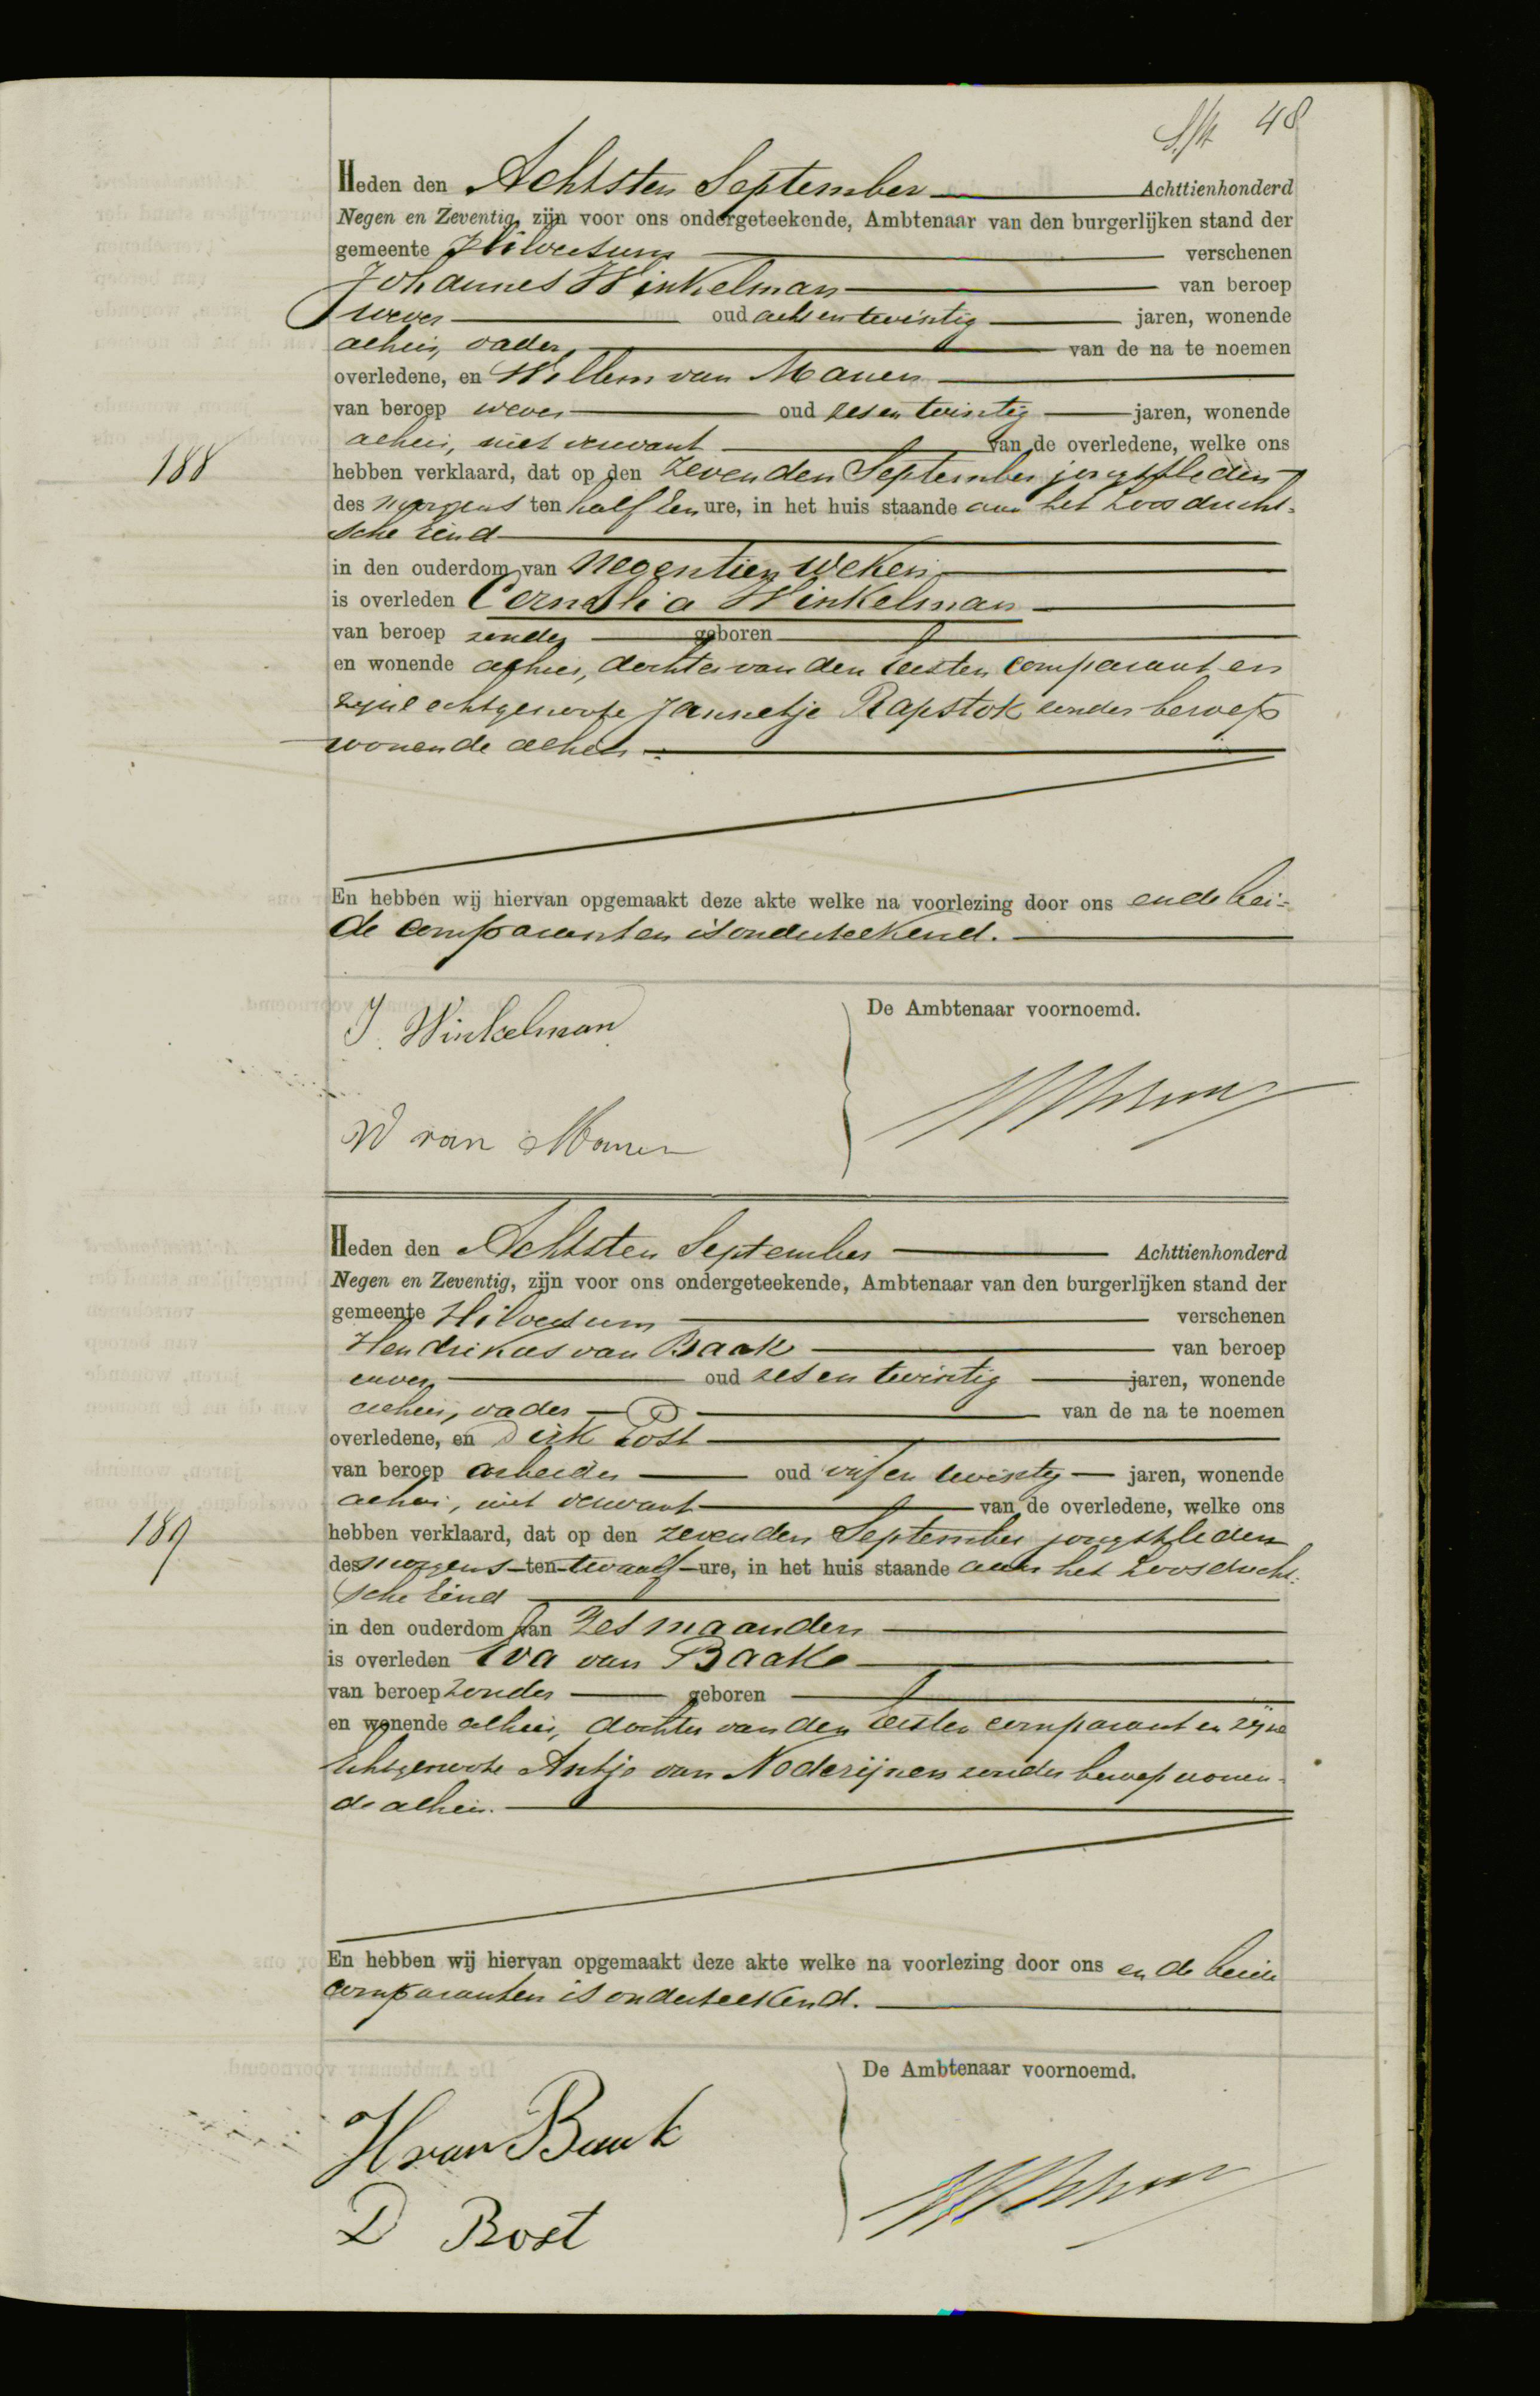 48
Heden den Achtsten September Achttienhonderd
Negen en Zeventig, zijn voor ons ondergeteekende, Ambtenaar van den burgerlijken stand der
gemeente Hilversum verschenen
Johannes Winkelman van beroep
wever oud acht en twintig jaren, wonende
alhier, vader van de na te noemen
overledene, en Willem van Manen
van beroep wever oud zes en twintig jaren, wonende
alhier, niet verwant van de overledene, welke ons
188
hebben verklaard, dat op den zevenden September jongstleden
des morgens ten half een ure, in het huis staande aan het Loosdrecht-
sche Eind
in den ouderdom van negentien weken
is overleden Cornelia Winkelman
van beroep zonder geboren
en wonende alhier, dochter van den eersten comparant en
zijne echtgenoote Jannetje Rapstok zonder beroep
wonende alhier
En hebben wij hiervan opgemaakt deze akte welke na voorlezing door ons en de bei-
de comparanten is onderteekend.
De Ambtenaar voornoemd.
J. Winkelman
W van Manen
Heden den Achtsten September Achttienhonderd
Negen en Zeventig, zijn voor ons ondergeteekende, Ambtenaar van den burgerlijken stand der
gemeente Hilversum verschenen
Hendrikus van Baak van beroep
wever oud zes en twintig jaren, wonende
alhier, vader van de na te noemen
overledene, en Dirk Post
van beroep arbeider oud vijf en twintig jaren, wonende
alhier, niet verwant van de overledene, welke ons
189
hebben verklaard, dat op den zevenden September jongstleden
des morgens ten twaalf ure, in het huis staande aan het Loosdrecht-
sche Eind
in den ouderdom van Zes maanden
is overleden Eva van Baak
van beroep zonder geboren
en wonende alhier, dochter van den eersten comparant en zijne
Echtgenoote Antje van Noderijnen zonder beroep wonen-
de alhier.
En hebben wij hiervan opgemaakt deze akte welke na voorlezing door ons en de beide
comparanten is onderteekend.
De Ambtenaar voornoemd.
H van Baak
D Post